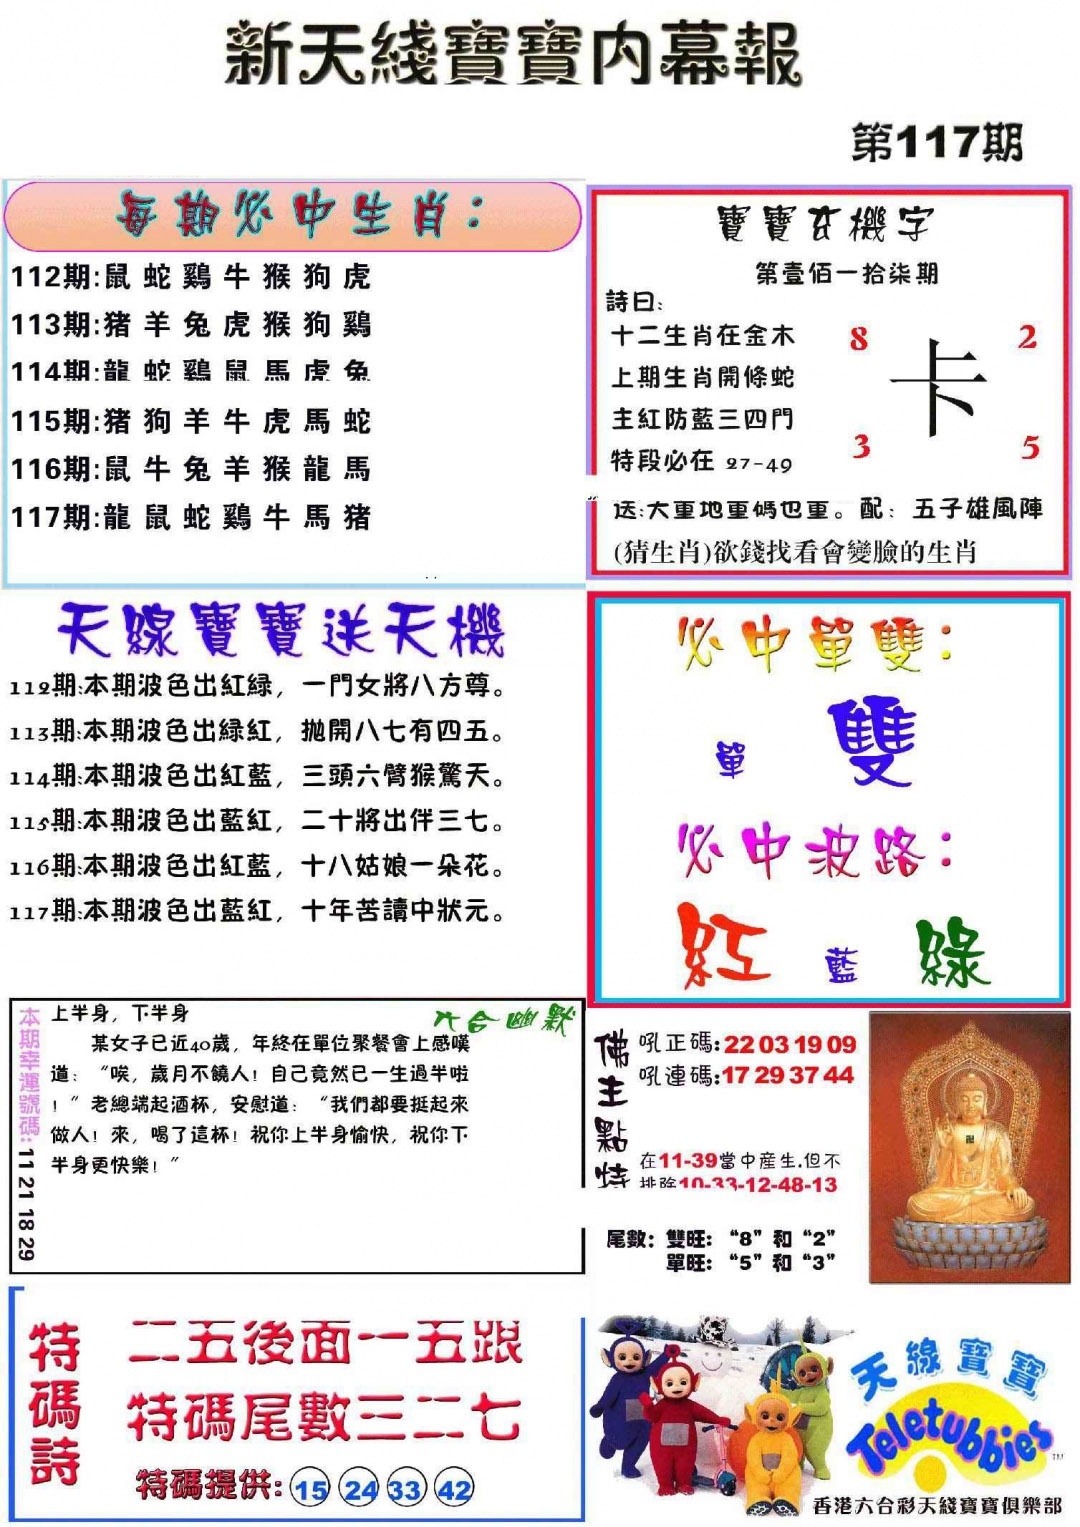 新天綫寶寶内幕報
第117期
每期必中生肖：
112期:鼠 蛇 鷄 牛 猴 狗 虎
113期:猪 羊 兔 虎 猴 狗 鷄
114期:龍 蛇 鷄 鼠 馬 虎 兔
115期:猪 狗 羊 牛 虎 馬 蛇
116期:鼠 牛 兔 羊 猴 龍 馬
117期:龍 鼠 蛇 鷄 牛 馬 猪
寶寶玄機字
第壹佰一拾柒期
詩曰:
十二生肖在金木
上期生肖開條蛇
主紅防藍三四門
特段必在 27-49
8 2
卡
3 5
送:大重地重碼也重。配：五子雄風陣
(猜生肖)欲錢找看會變臉的生肖
天線寶寶送天機
112期:本期波色出紅緑，一門女將八方尊。
113期:本期波色出緑紅，抛開八七有四五。
114期:本期波色出紅藍，三頭六臂猴驚天。
115期:本期波色出藍紅，二十將出伴三七。
116期:本期波色出紅藍，十八姑娘一朵花。
117期:本期波色出藍紅，十年苦讀中狀元。
必中單雙：
單 雙
必中波路：
紅 藍 綠
本期幸運號碼: 11 21 18 29
六合幽默
上半身，下半身
某女子已近40歲，年終在單位聚餐會上感嘆
道：“唉，歲月不饒人！自己竟然已一生過半啦
！”老總端起酒杯，安慰道：“我們都要挺起來
做人！來，喝了這杯！祝你上半身愉快，祝你下
半身更快樂！”
佛主點特
吼正碼:22 03 19 09
吼連碼:17 29 37 44
在11-39當中産生.但不
排除10-33-12-48-13
尾數：雙旺：“8”和“2”
單旺：“5”和“3”
特碼詩
二五後面一五跟
特碼尾數三二七
特碼提供: 15 24 33 42
天線寶寶
Teletubbies
TM
香港六合彩天綫寶寶俱樂部